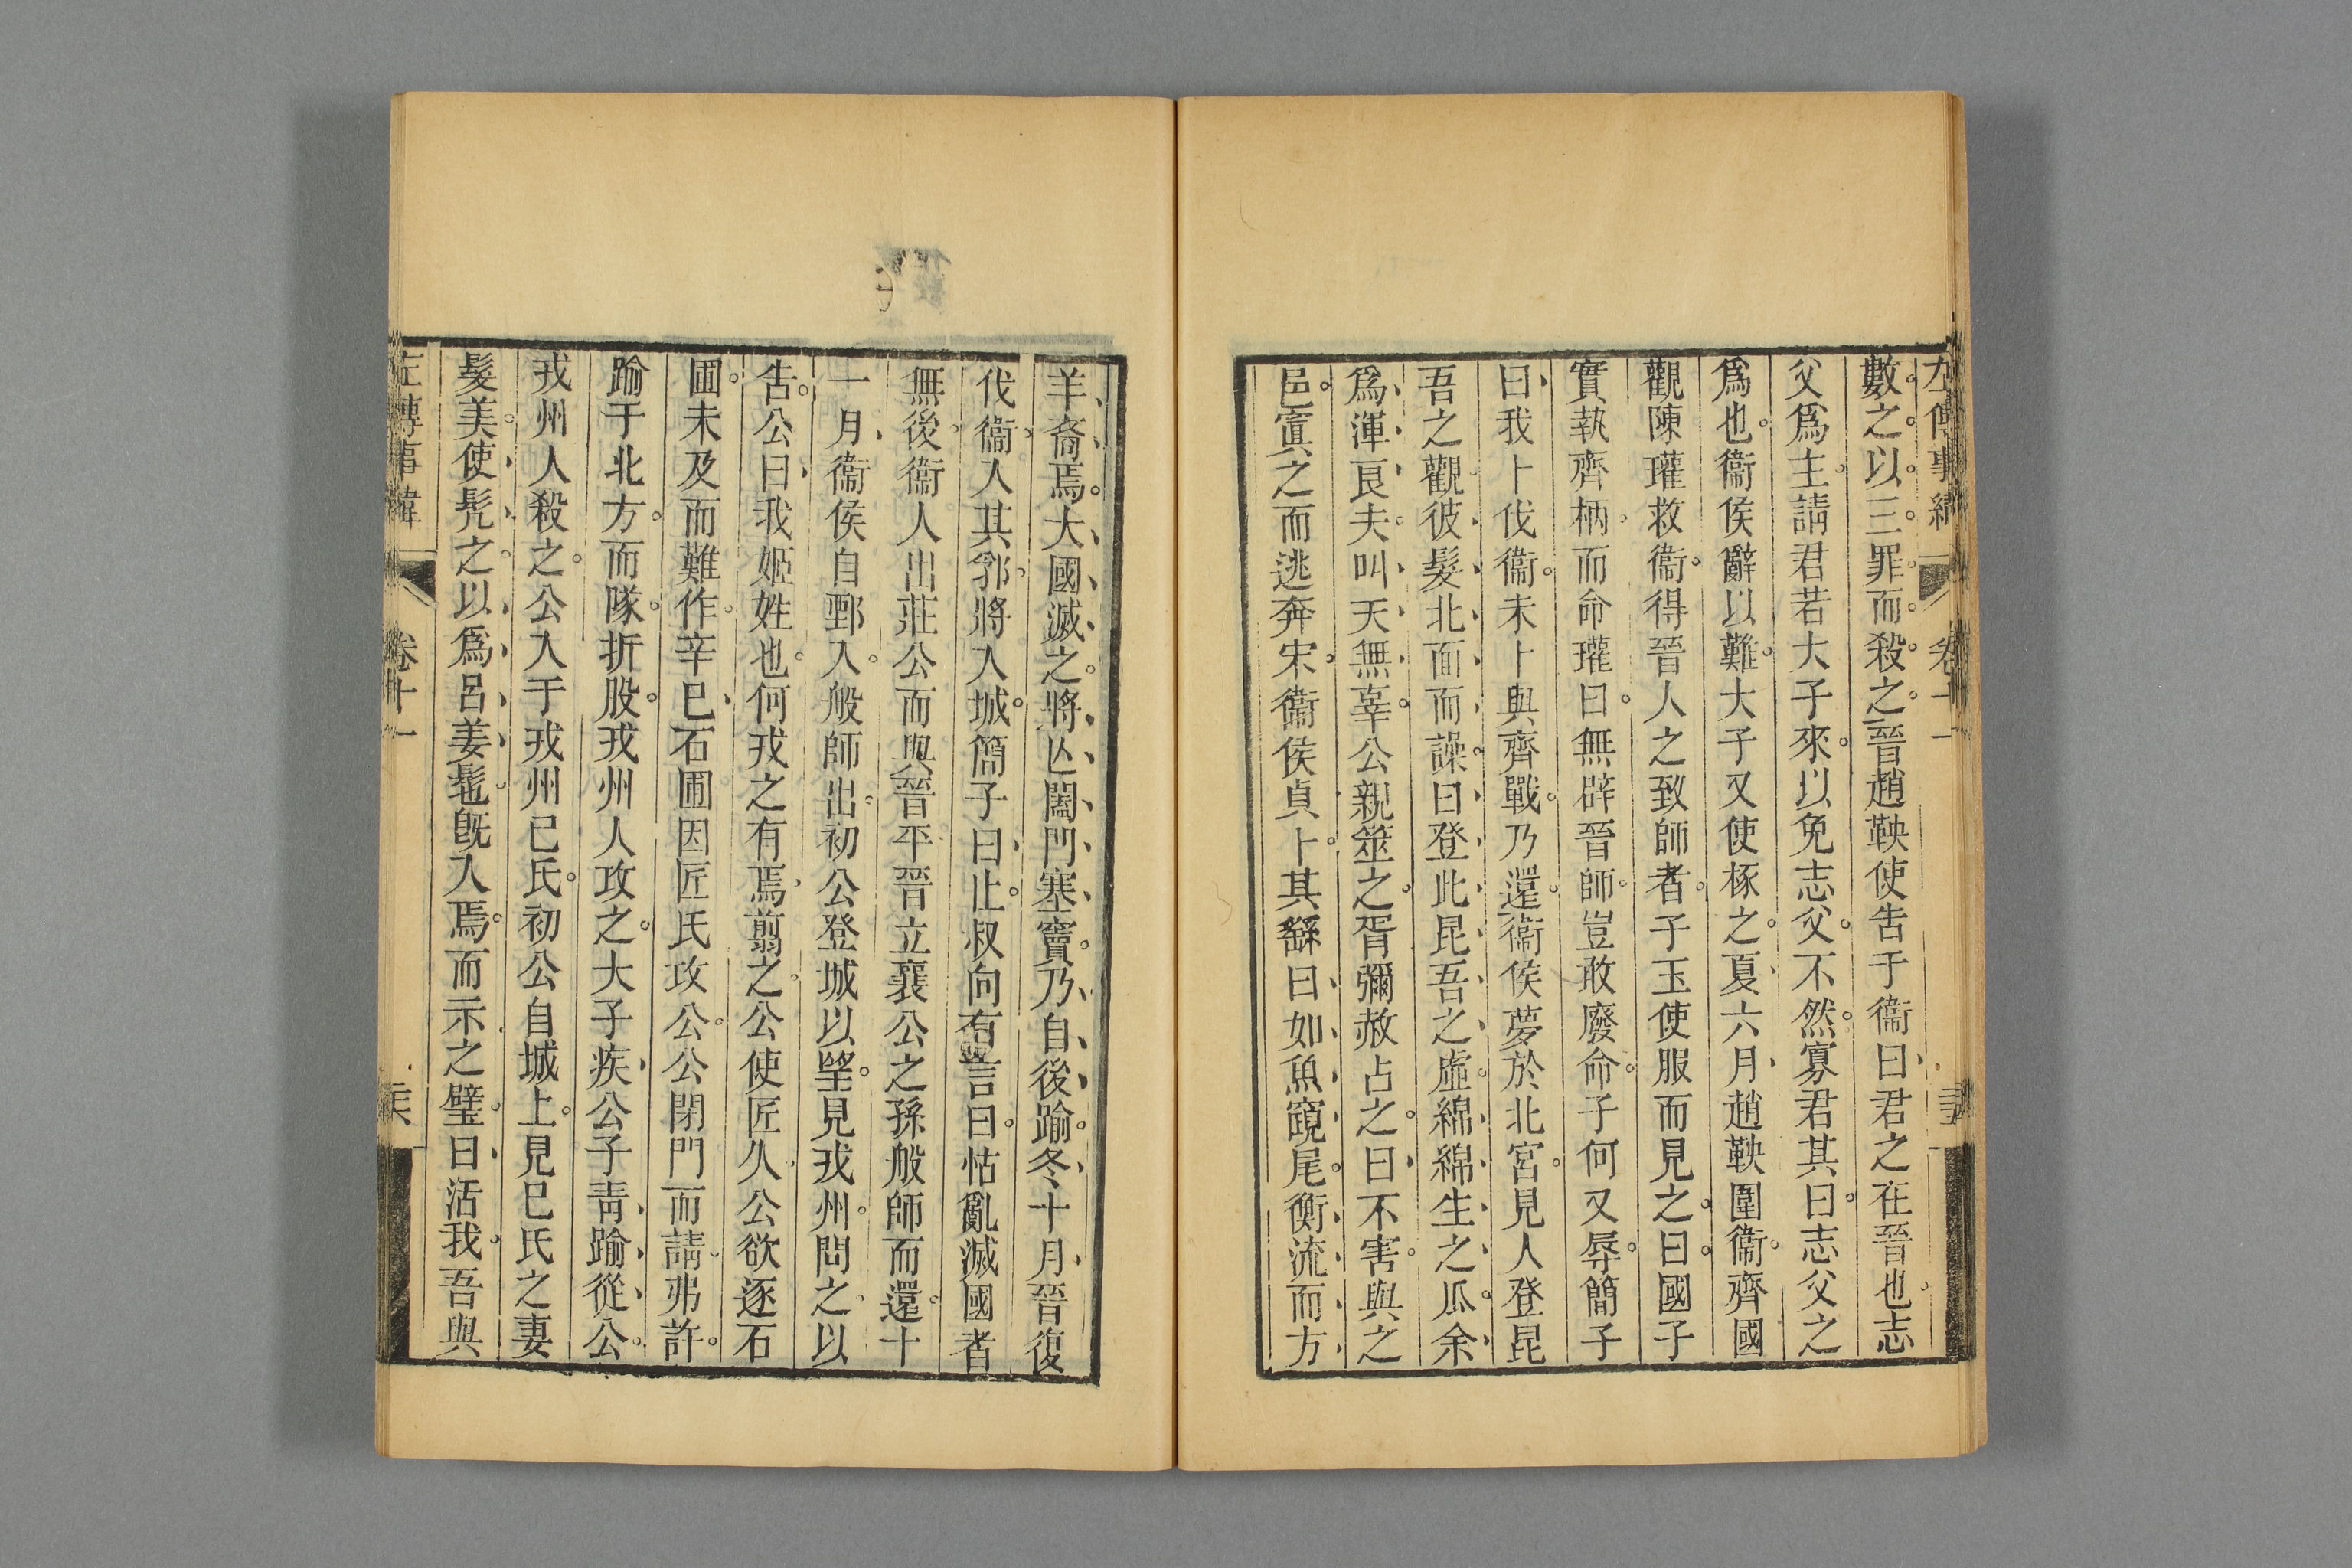 左傳事緯
卷十一
數之以三罪而殺之晉趙鞅使告于衞曰君之在晉也志
父爲主請君若大子來以免志父不然寡君其曰志父之
爲也衞侯辭以難大子又使椓之夏六月趙鞅圍衞齊國
觀陳瓘救衞得晉人之致師者子玉使服而見之曰國子
實執齊柄而命瓘曰無辟晉師豈敢廢命子何又辱簡子
曰我卜伐衞未卜與齊戰乃還衞侯夢於北宮見人登昆
吾之觀彼髮北面而譟曰登此昆吾之虛綿綿生之瓜余
爲渾良夫叫天無辜公親筮之胥彌赦占之曰不害與之
邑寘之而逃奔宋衞侯貞卜其繇曰如魚竀尾衡流而方
羊裔焉大國滅之將亾闔門塞竇乃自後踰冬十月晉復
伐衞入其郛將入城簡子曰止叔向有言曰怙亂滅國者
無後衞人出莊公而與晉平晉立襄公之孫般師而還十
一月衞侯自鄄入般師出初公登城以望見戎州問之以
告公曰我姬姓也何戎之有焉翦之公使匠久公欲逐石
圃未及而難作辛巳石圃因匠氏攻公公閉門而請弗許
踰于北方而隊折股戎州人攻之大子疾公子靑踰從公
戎州人殺之公入于戎州己氏初公自城上見己氏之妻
髮美使髡之以爲呂姜髢旣入焉而示之璧曰活我吾與
左傳事緯
卷十一